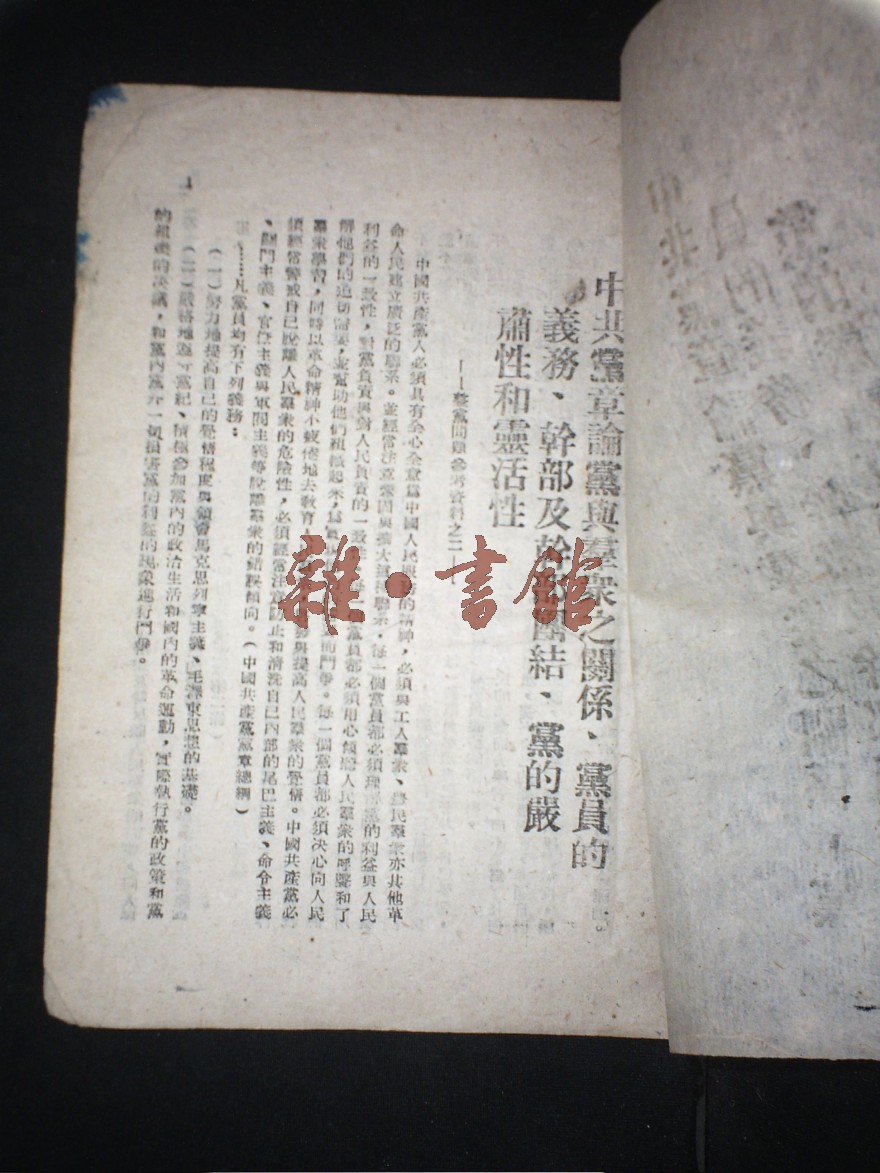 中共黨章論黨與羣衆之關係、黨員的
義務、幹部及幹部團結、黨的嚴
肅性和靈活性
——整黨問題參考資料之二——
中國共產黨人必須具有全心全意爲中國人民服務的精神，必須與工人羣衆、農民羣衆亦其他革
命人民建立廣泛的聯系。並經常注意鞏固與擴大這種聯系。每一個黨員都必須理解黨的利益與人民
利益的一致性，對黨負責與對人民負責的一致性。每一個黨員都必須用心傾聽人民羣衆的呼聲和了
解他們的迫切需要，並幫助他們組織起來，爲實現他們的需要而鬥爭。每一個黨員都必須決心向人民
羣衆學習，同時以革命精神不疲倦地去教育人民羣衆，啟發與提高人民羣衆的覺悟。中國共產黨必
須經常警戒自己脫離人民羣衆的危險性，必須經常注意防止和清洗自己內部的尾巴主義、命令主義
、關門主義、官僚主義與軍閥主義等脫離羣衆的錯誤傾向。（中國共產黨黨章總綱）
……凡黨員均有下列義務：
（一）努力地提高自己的覺悟程度與領會馬克思列寧主義、毛澤東思想的基礎。
（二）嚴格地遵守黨紀、積極參加黨內的政治生活和國內的革命運動，實際執行黨的政策和黨
的組織的決議，和黨內黨外一切損害黨的利益的現象進行鬥爭。
1
雜·書館